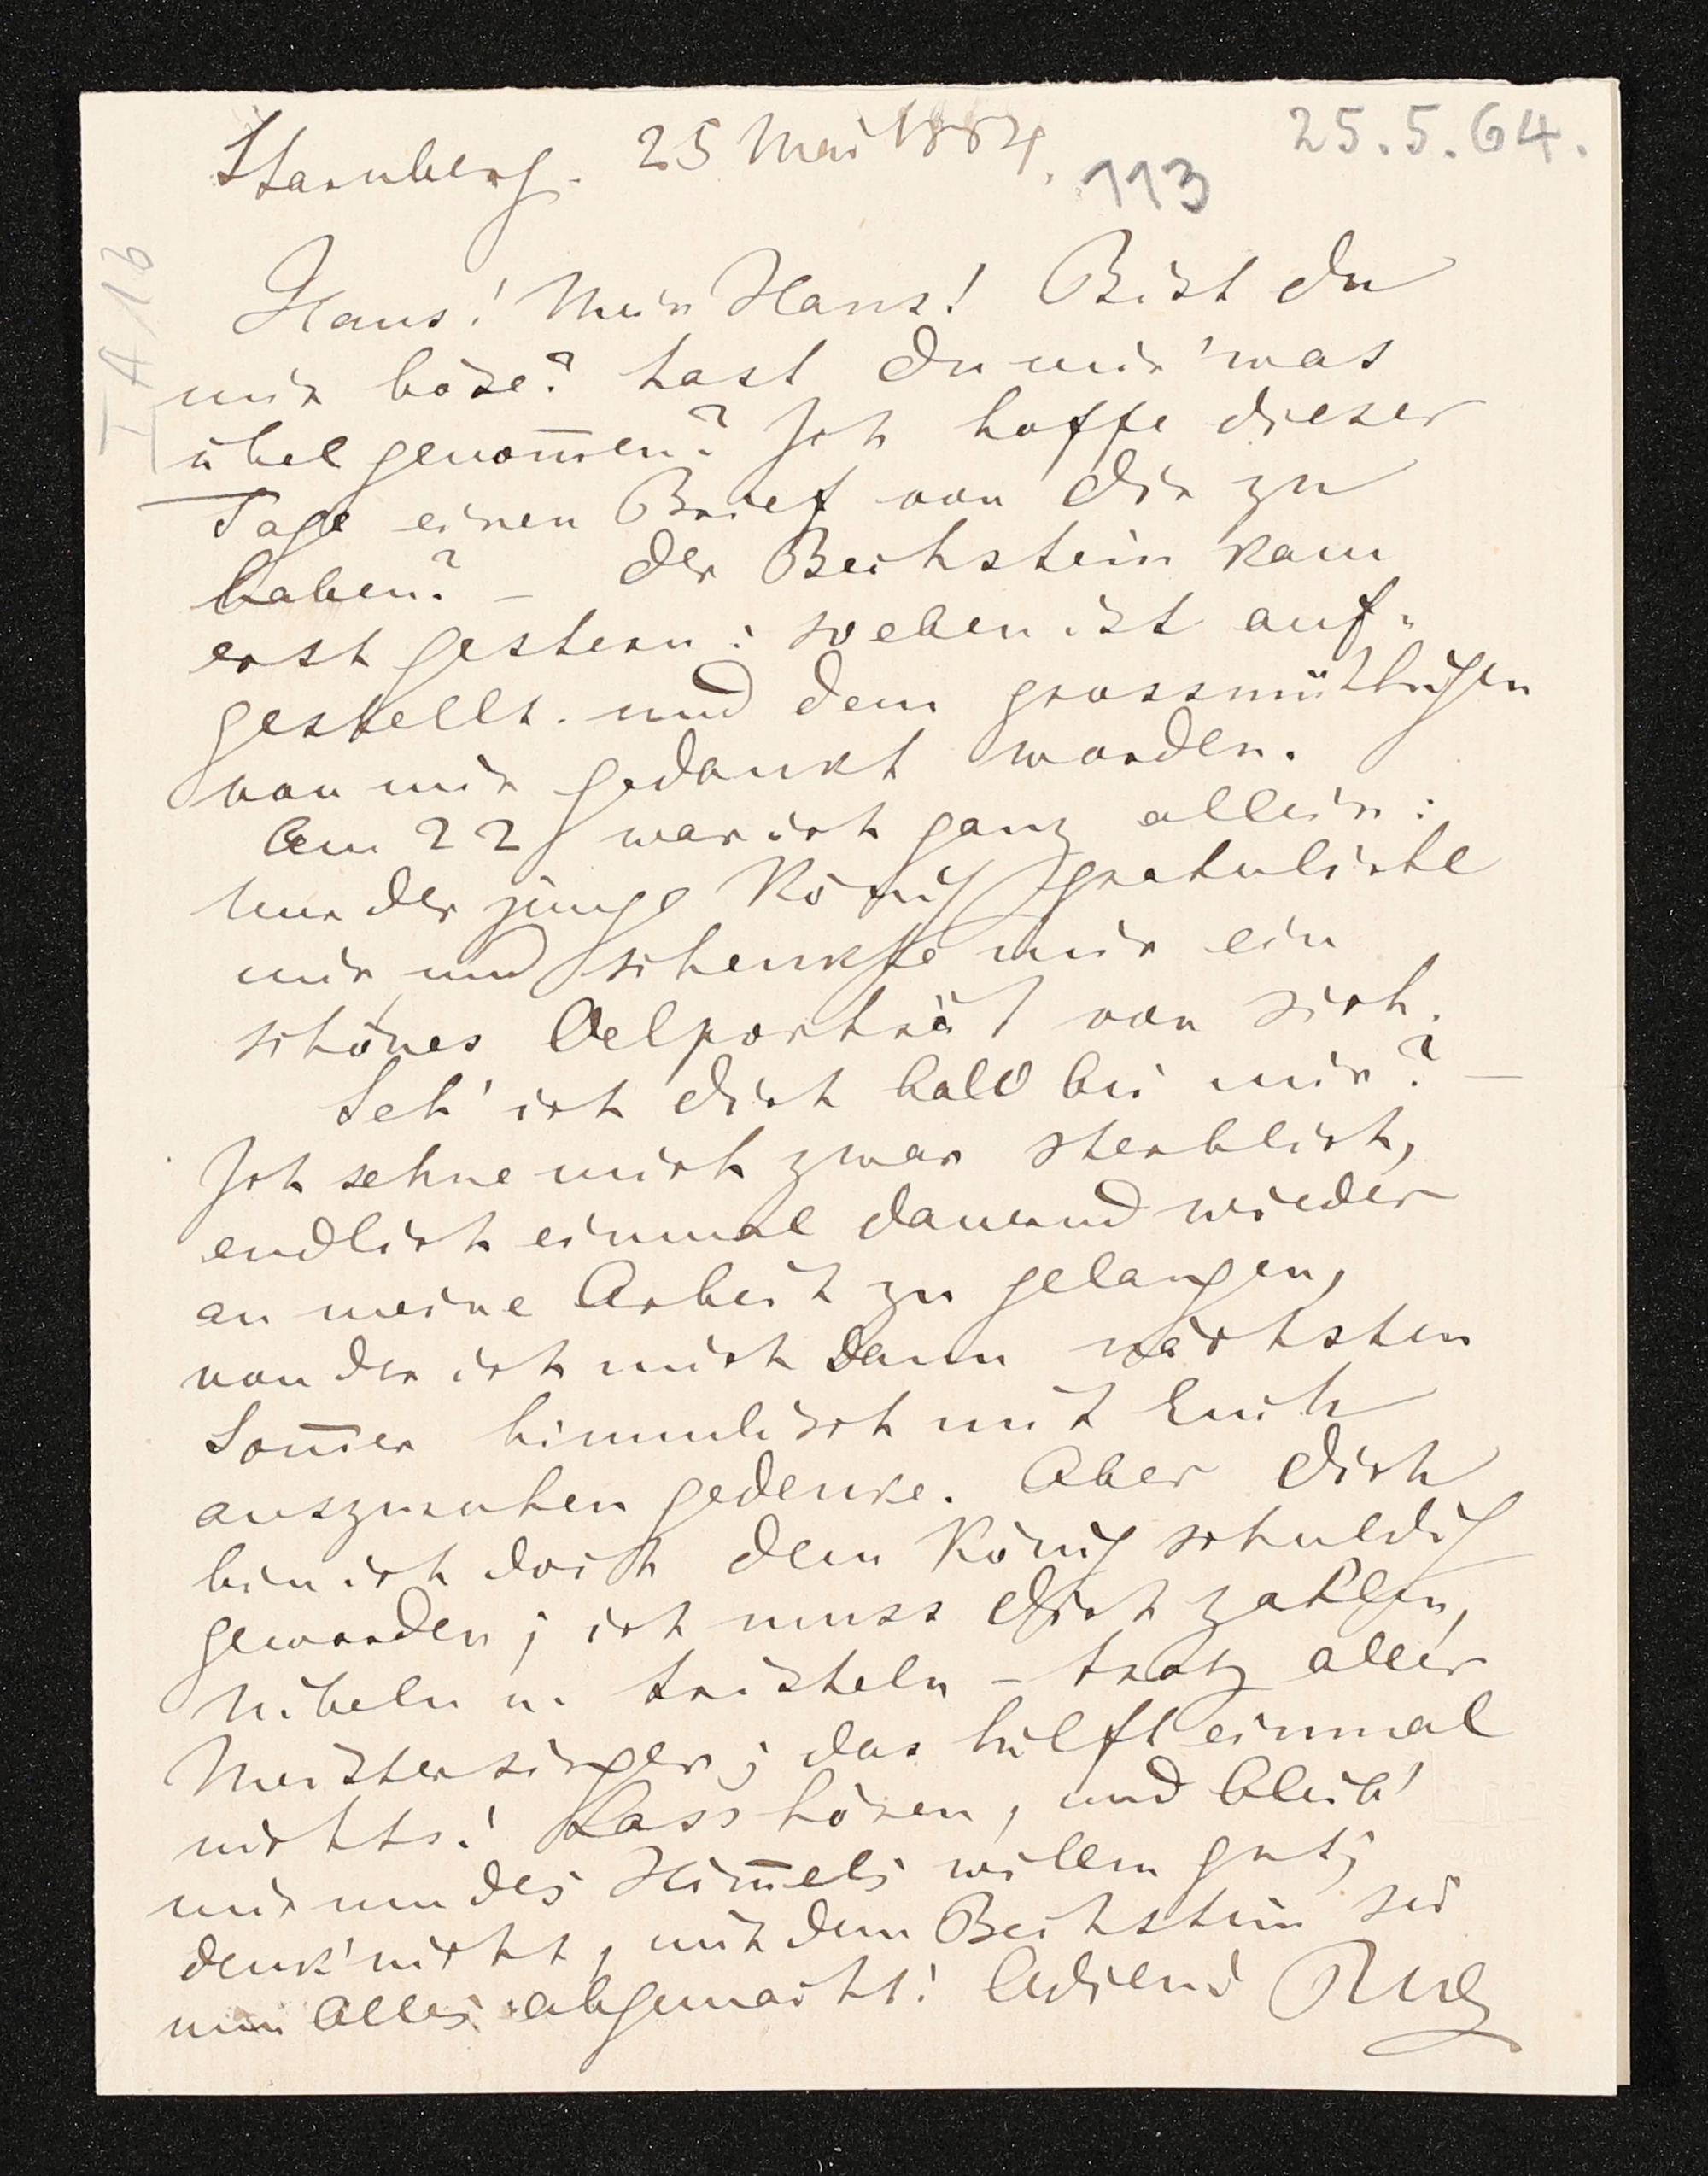 Starnberg. 25 Mai 1864.
25.5.64.
113
I A 1b
Hans! Mein Hans! Bist du
mir böse? hast du mir 'was
übel genom̅en? Ich hoffe dieser
Tage einen Brief von dir zu
haben? – der Bechstein kam
erst gestern: soeben ist auf-
gestellt. und dem grossmüthigen
von mir gedankt worden.
Am 22 war ich ganz allein:
nur der junge König gratulirte
mir und schenkte mir ein
schönes Oelporträt von sich.
Seh' ich dich bald bei mir? –
Ich sehne mich zwar sterblich,
endlich einmal dauernd wieder
an meine Arbeit zu gelangen,
von der ich mich dann nächsten
Som̅er himmlisch mit Euch
auszuruhen gedenke. Aber dich
bin ich doch dem König schuldig
geworden; ich muss dich zahlen,
Nibeln u. tristeln – trotz aller
Meistersinger; das hilft einmal
nichts! Lass hören, und bleib'
mir um des Him̅els willen gut;
denk' nicht, mit dem Bechstein sei
nun Alles abgemacht! Adieu! RW